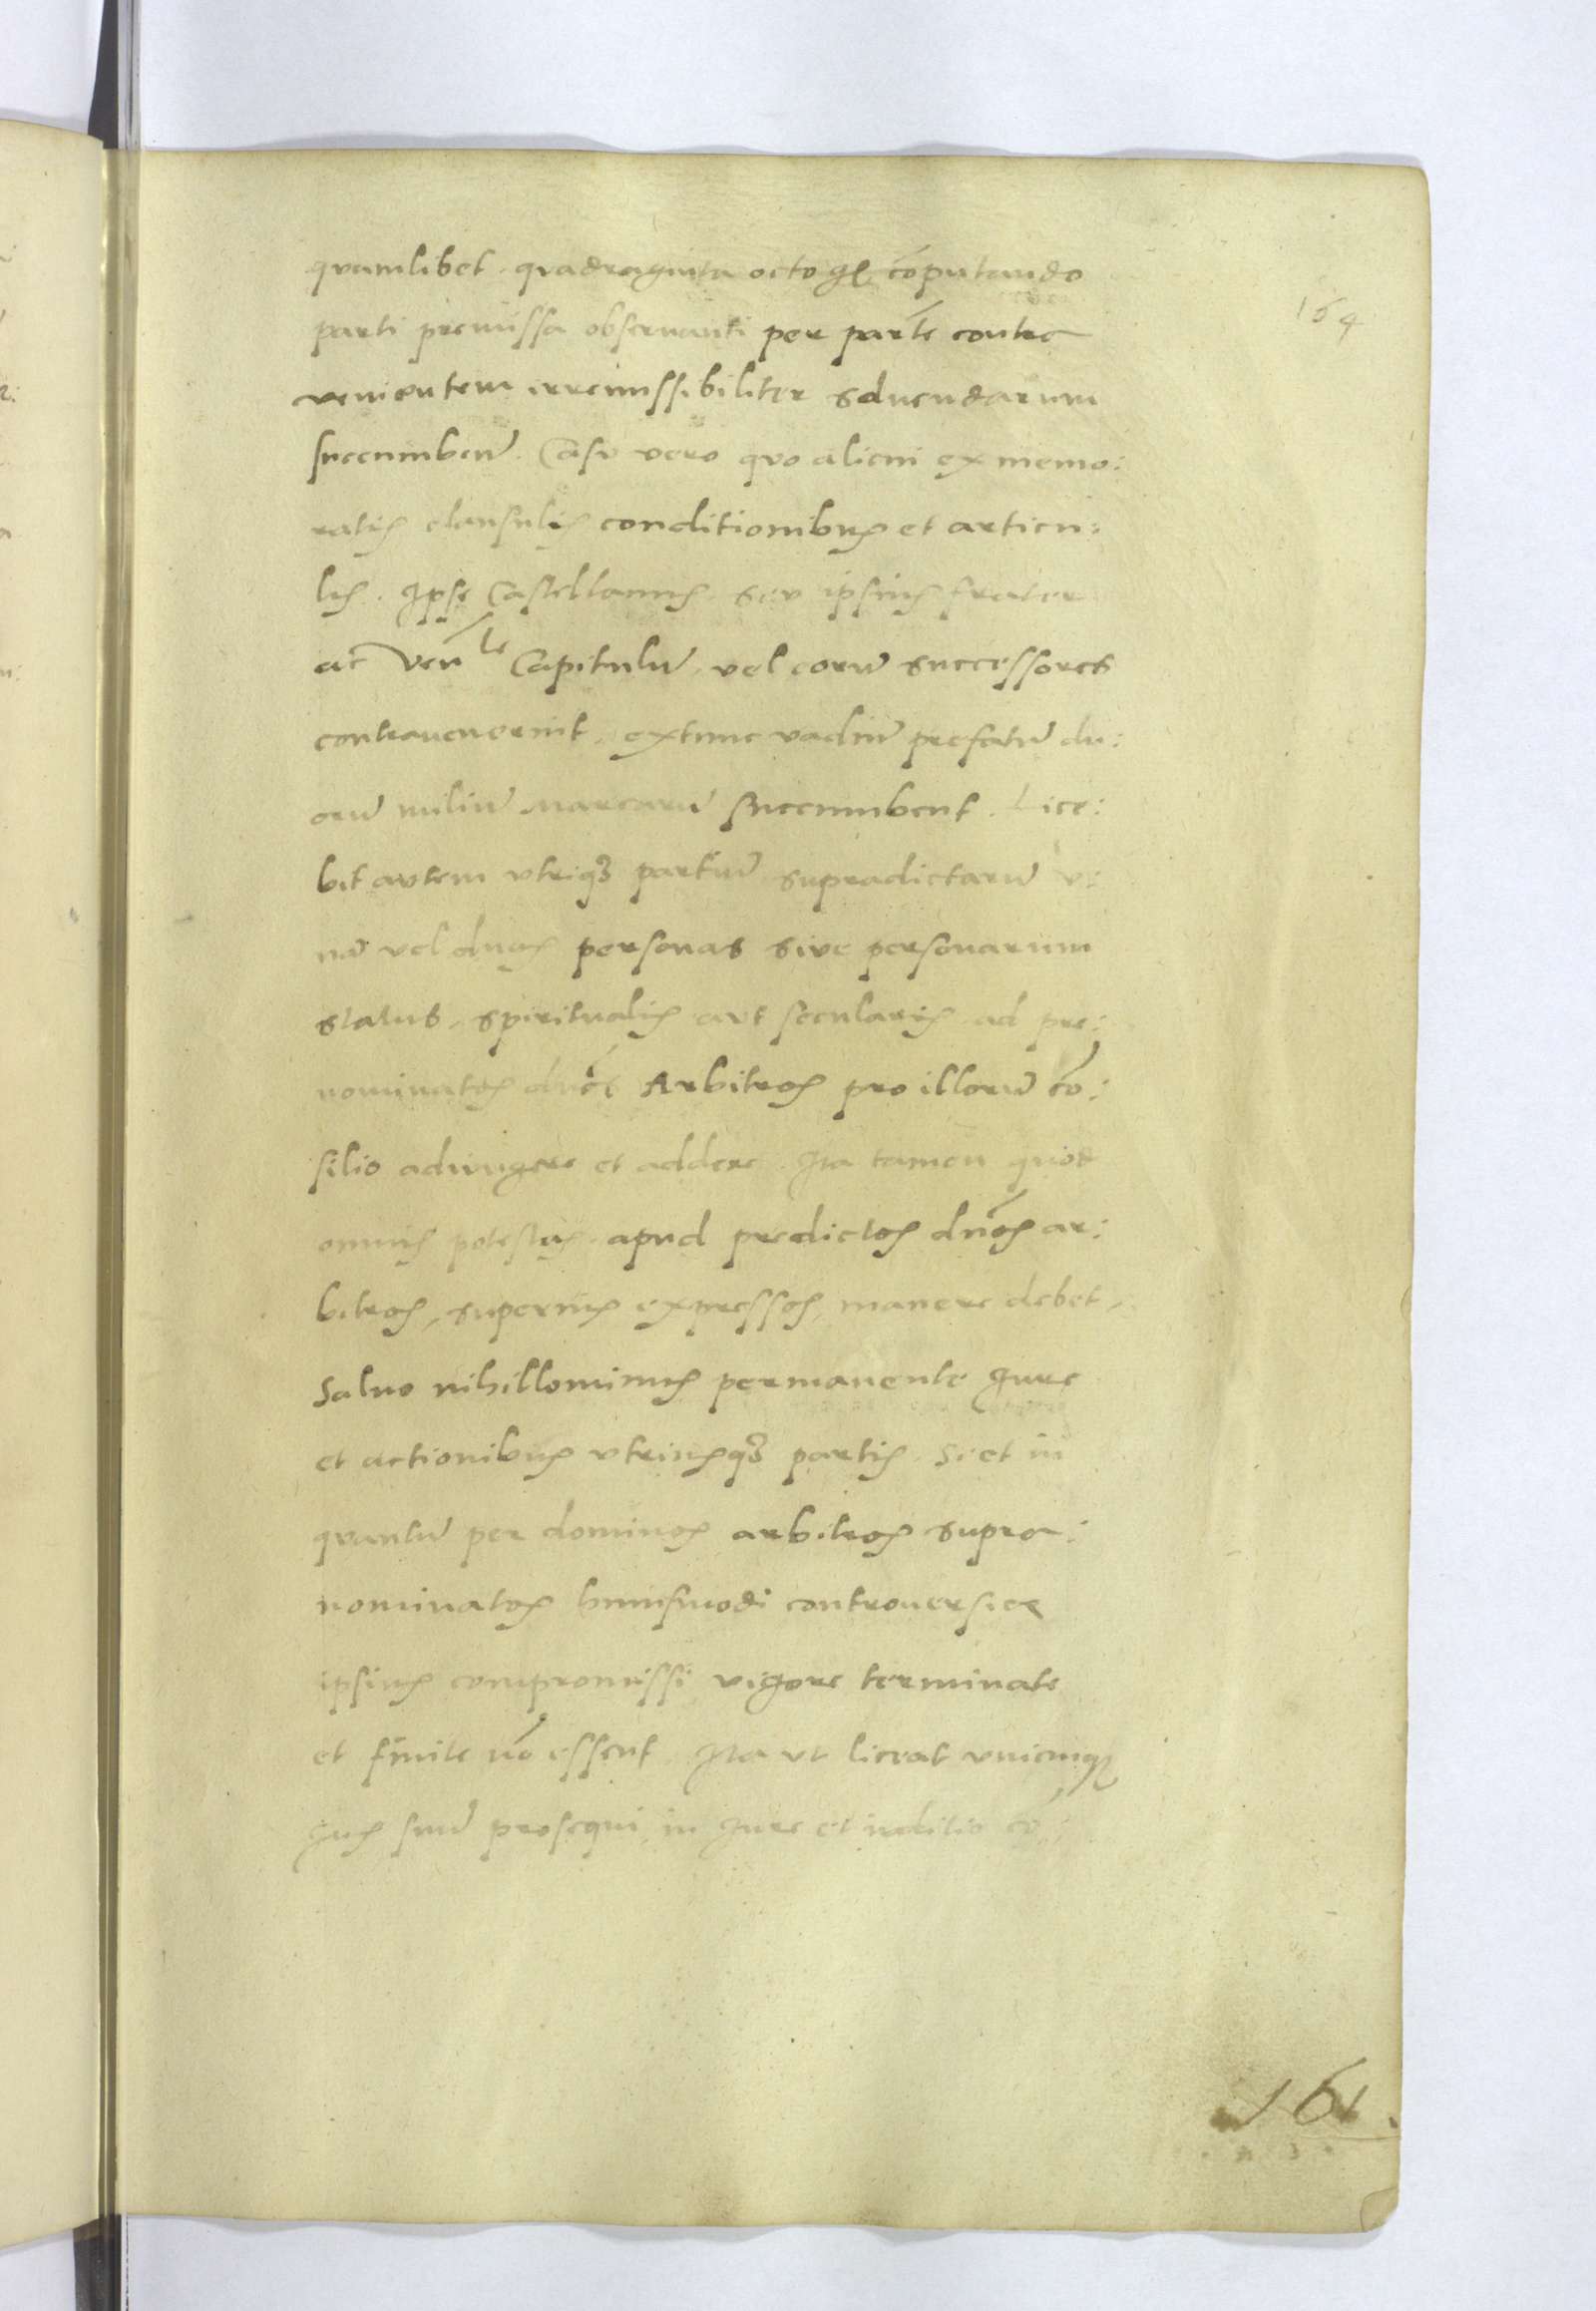 quamlibet quadraginta octo gl computando
164
parti premissa observanti per partē contra
venientem irremissibiliter solvendarum
succumbent. Casu vero quo alicui ex memo:
ratis clausulis conditionibus et articu:
lis. Ipse Castellanus seu ipsius frater
ac Venle Capitulū vel eorū successores
contravenerint, extunc vadiū prefatū du:
orū miliū marcarū succumbent. Lice:
bit autem utriqȝ partiū supradictarū u:
nā vel duas personas sive personarum
status, spiritualis aut secularis ad pre:
nominatos dnōs Arbitros pro illorū cō:
silio adiungere et addere. Ita tamen quod
omnis potestas apud predictos dnōs ar:
bitros, superius expressos, manere debet,
Salvo nihillominus permanente Iure
et actionibus utriusqȝ partis. Si et in
quantū per dominos arbitros supra:
nominatos huiusmodi controversiae
ipsius compromissi vigore terminate
et finite nō essent. Ita ut liceat unicuiqȝ
Ius suū prosequi in Iure et iuditio cō:
161.